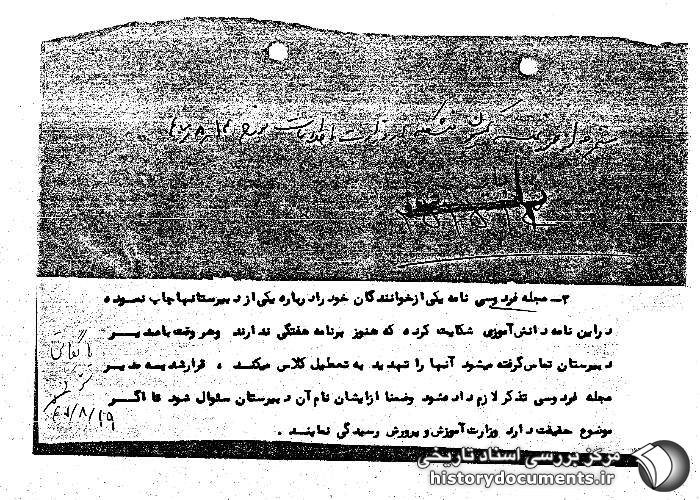 ۳ـ مجله فردوسی نامه یکی از خوانندگان خود را درباره یکی از دبیرستانها چاپ نموده
در این نامه دانش‌آموزی شکایت کرده که هنوز برنامه هفتگی ندارند وهر وقت با مدیر
دبیرستان تماس گرفته میشود آنها را تهدید به تعطیل کلاس میکند ، قرار شد به مدیر
مجله فردوسی تذکر لازم داده شود وضمنا از ایشان نام آن دبیرستان سئوال شود تا اگر
موضوع حقیقت دارد وزارت آموزش و پرورش رسیدگی نمایند .
مرکز بررسی اسناد تاریخی
historydocuments.ir